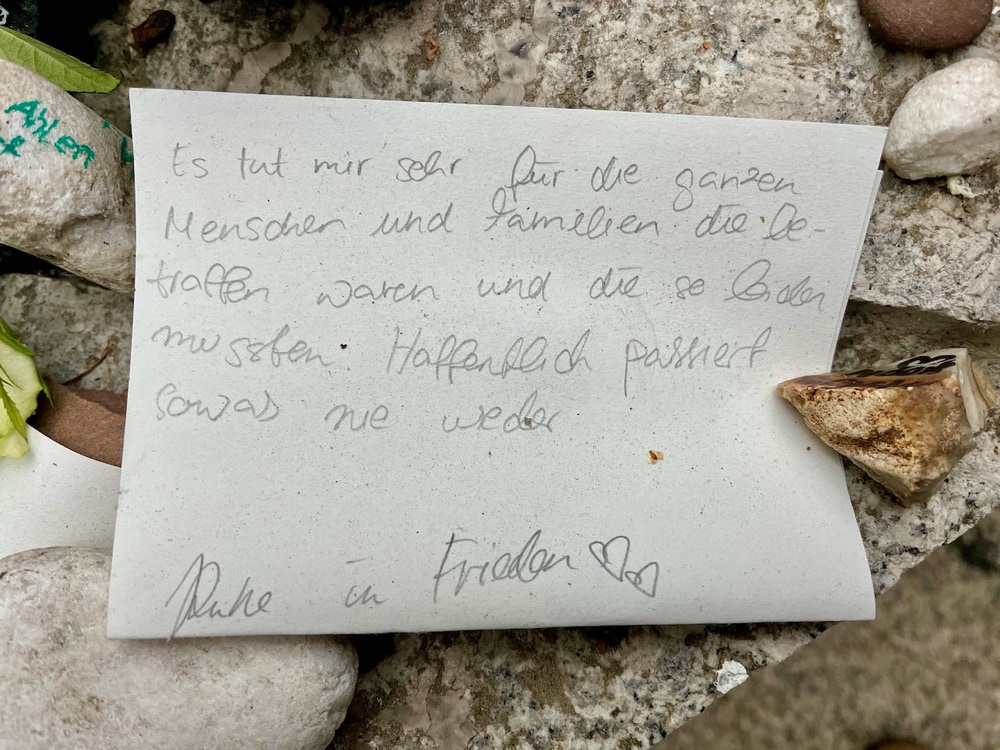 Ahlen
Es tut mir sehr für die ganzen
Menschen und Familien die be-
traffen waren und die so leiden
mussten. Hoffentlich passiert
sowas nie wieder
Ruhe in Frieden